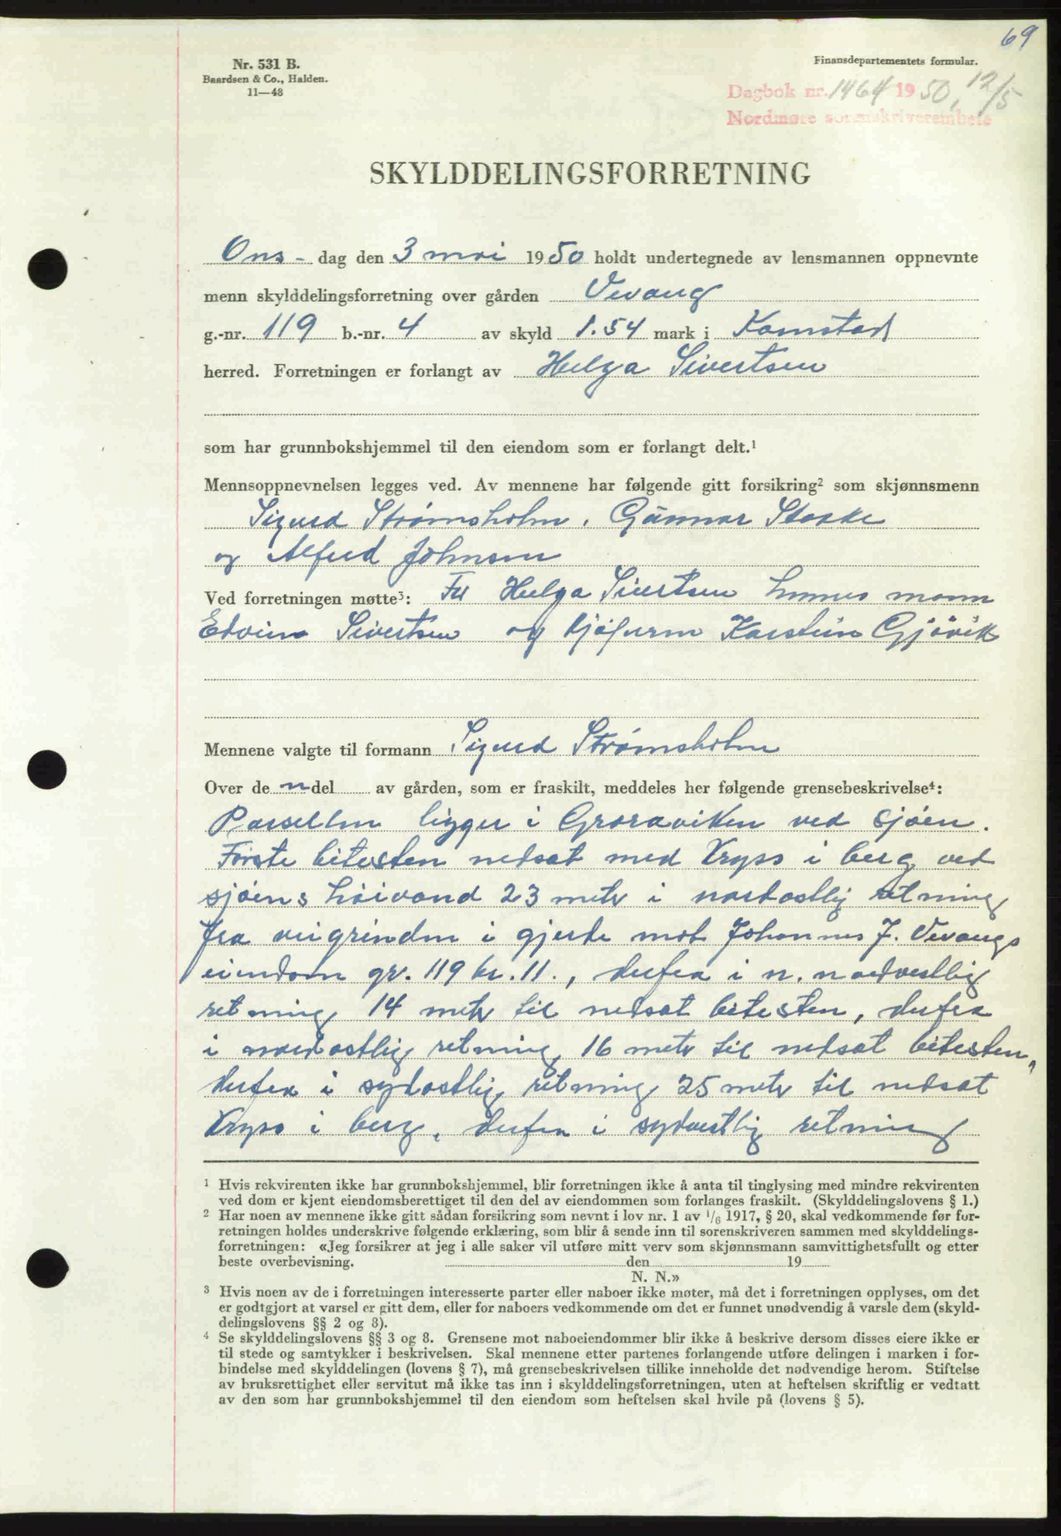 69
Nr. 531 B.
Baardsen & Co., Halden.
11—48
Finansdepartementets formular.
Dagbok nr. 1464 1950, 12/5
Nordmøre sorenskriverembete
SKYLDDELINGSFORRETNING
Ons- dag den 3 mai 1950 holdt undertegnede av lensmannen oppnevnte
menn skylddelingsforretning over gården Vevang
g.-nr. 119 b.-nr. 4 av skyld 1.54 mark i Kornstad
herred. Forretningen er forlangt av Helga Sivertsen
som har grunnbokshjemmel til den eiendom som er forlangt delt.¹
Mennsoppnevnelsen legges ved. Av mennene har følgende gitt forsikring² som skjønnsmenn
Sigurd Strømsholm, Gunnar Stokke
og Alfred Johnsen
Ved forretningen møtte³: Fr Helga Sivertsen hennes mann
Edvin Sivertsen og kjøperen Karstein Gjøvik
Mennene valgte til formann Sigurd Strømsholm
Over de n del av gården, som er fraskilt, meddeles her følgende grensebeskrivelse⁴:
Parsellen ligger i Groraviken ved sjøen.
Første bitesten nedsat med kryss i berg ved
sjøens høivand 23 meter i nordostlig retning
fra veigrinden i gjerde mot Johannes J. Vevangs
eiendom gr. 119 br. 11., derfra i n. nordvestlig
retning 14 meter til nedsat bitesten, derfra
i nordostlig retning 16 meter til nedsat bitesten,
derfra i sydostlig retning 25 meter til nedsat
kryss i berg, derfra i sydvestlig retning
¹ Hvis rekvirenten ikke har grunnbokshjemmel, blir forretningen ikke å anta til tinglysing med mindre rekvirenten
ved dom er kjent eiendomsberettiget til den del av eiendommen som forlanges fraskilt. (Skylddelingslovens § 1.)
² Har noen av mennene ikke gitt sådan forsikring som nevnt i lov nr. 1 av 1/6 1917, § 20, skal vedkommende før for-
retningen holdes underskrive følgende erklæring, som blir å sende inn til sorenskriveren sammen med skylddelings-
forretningen: «Jeg forsikrer at jeg i alle saker vil utføre mitt verv som skjønnsmann samvittighetsfullt og etter
beste overbevisning. den 19
N. N.»
³ Hvis noen av de i forretningen interesserte parter eller naboer ikke møter, må det i forretningen opplyses, om det
er godtgjort at varsel er gitt dem, eller for naboers vedkommende om det er funnet unødvendig å varsle dem (skyld-
delingslovens §§ 2 og 8).
⁴ Se skylddelingslovens §§ 3 og 8. Grensene mot naboeiendommer blir ikke å beskrive dersom disses eiere ikke er
til stede og samtykker i beskrivelsen. Skal mennene etter partenes forlangende utføre delingen i marken i for-
bindelse med skylddelingen (lovens § 7), må grensebeskrivelsen tillike inneholde det nødvendige herom. Stiftelse
av bruksrettighet eller servitut må ikke tas inn i skylddelingsforretningen, uten at heftelsen skriftlig er vedtatt
av den som har grunnbokshjemmel til den eiendom som heftelsen skal hvile på (lovens § 5).